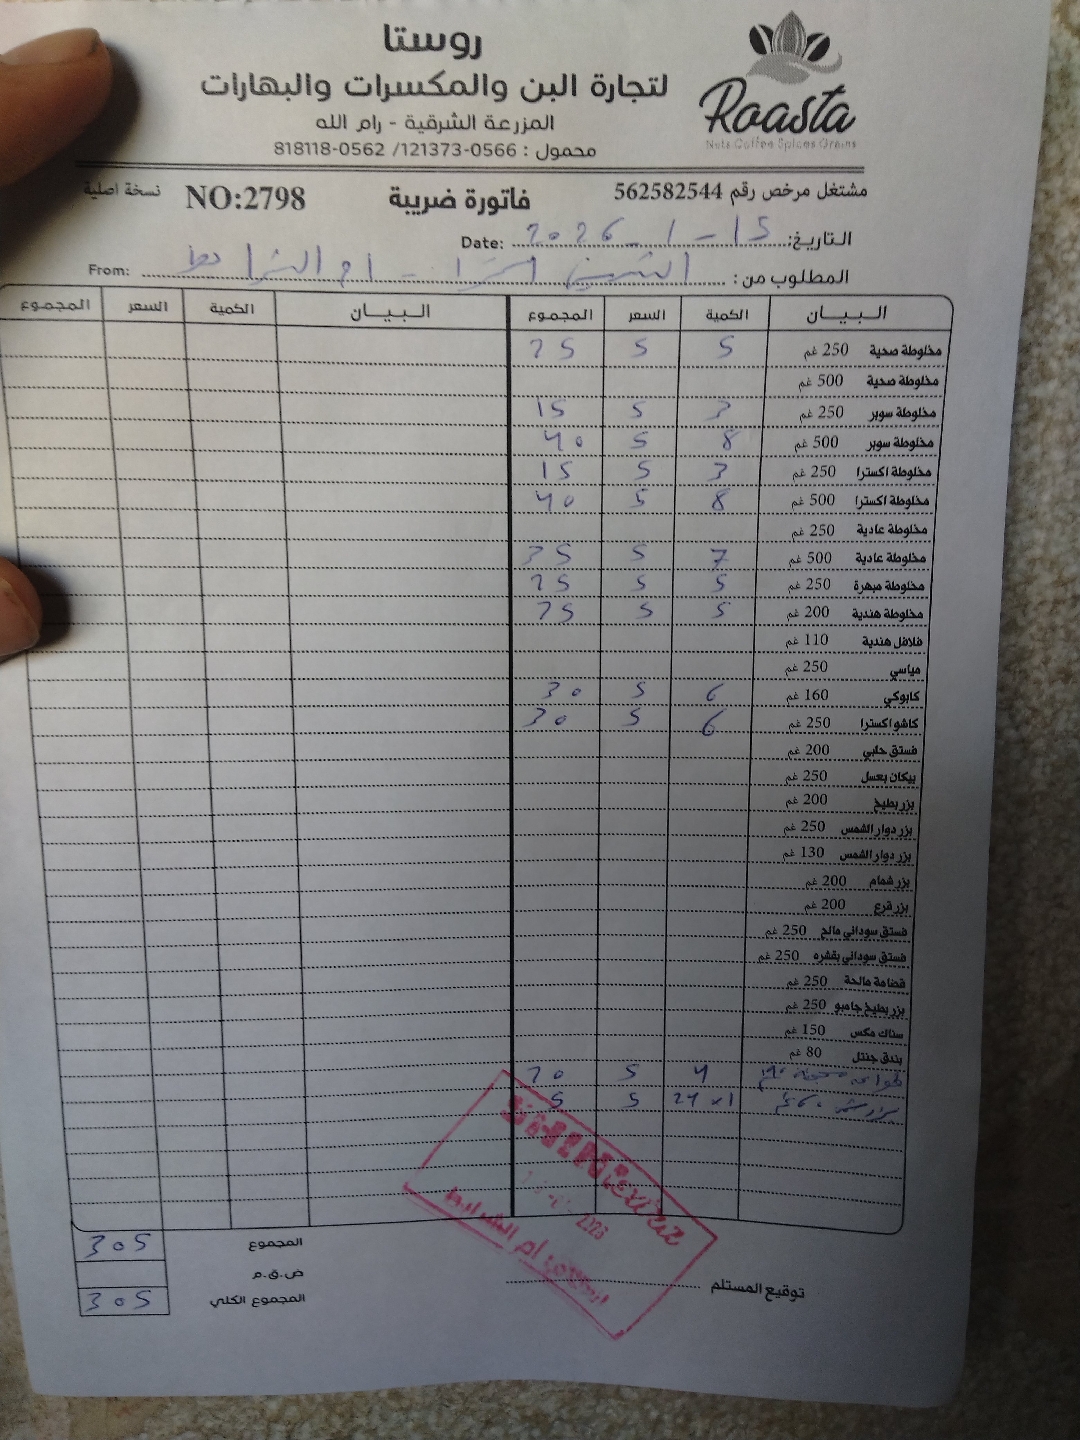 روستا
لتجارة البن والمكسرات والبهارات
المزرعة الشرقية - رام الله
محمول : 0566-121373/ 0562-818118
Roasta
Nuts Coffee Spices Grains
مشتغل مرخص رقم 562582544 فاتورة ضريبة NO:2798 نسخة اصلية
التاريخ: 15-1-2026 Date:
المطلوب من: الشيني اكسترا - ام الشرايط From:
البيـــان الكمية السعر المجموع البيـــان الكمية السعر المجموع
مخلوطة صحية 250 غم 5 5 25
مخلوطة صحية 500 غم
مخلوطة سوبر 250 غم 3 5 15
مخلوطة سوبر 500 غم 8 5 40
مخلوطة اكسترا 250 غم 3 5 15
مخلوطة اكسترا 500 غم 8 5 40
مخلوطة عادية 250 غم
مخلوطة عادية 500 غم 7 5 35
مخلوطة مبهرة 250 غم 5 5 25
مخلوطة هندية 200 غم 5 5 25
فلافل هندية 110 غم
مياسي 250 غم
كابوكي 160 غم 6 5 30
كاشو اكسترا 250 غم 6 5 30
فستق حلبي 200 غم
بيكان بعسل 250 غم
بزر بطيخ 200 غم
بزر دوار الشمس 250 غم
بزر دوار الشمس 130 غم
بزر شمام 200 غم
بزر قرع 200 غم
فستق سوداني مالح 250 غم
فستق سوداني بقشره 250 غم
قضامة مالحة 250 غم
بزر بطيخ جامبو 250 غم
سناك مكس 150 غم
بندق جنتل 80 غم
4 5 20
24×1 5 5
المجموع 305
ض.ق.م
المجموع الكلي 305
توقيع المستلم
ام الشرايط